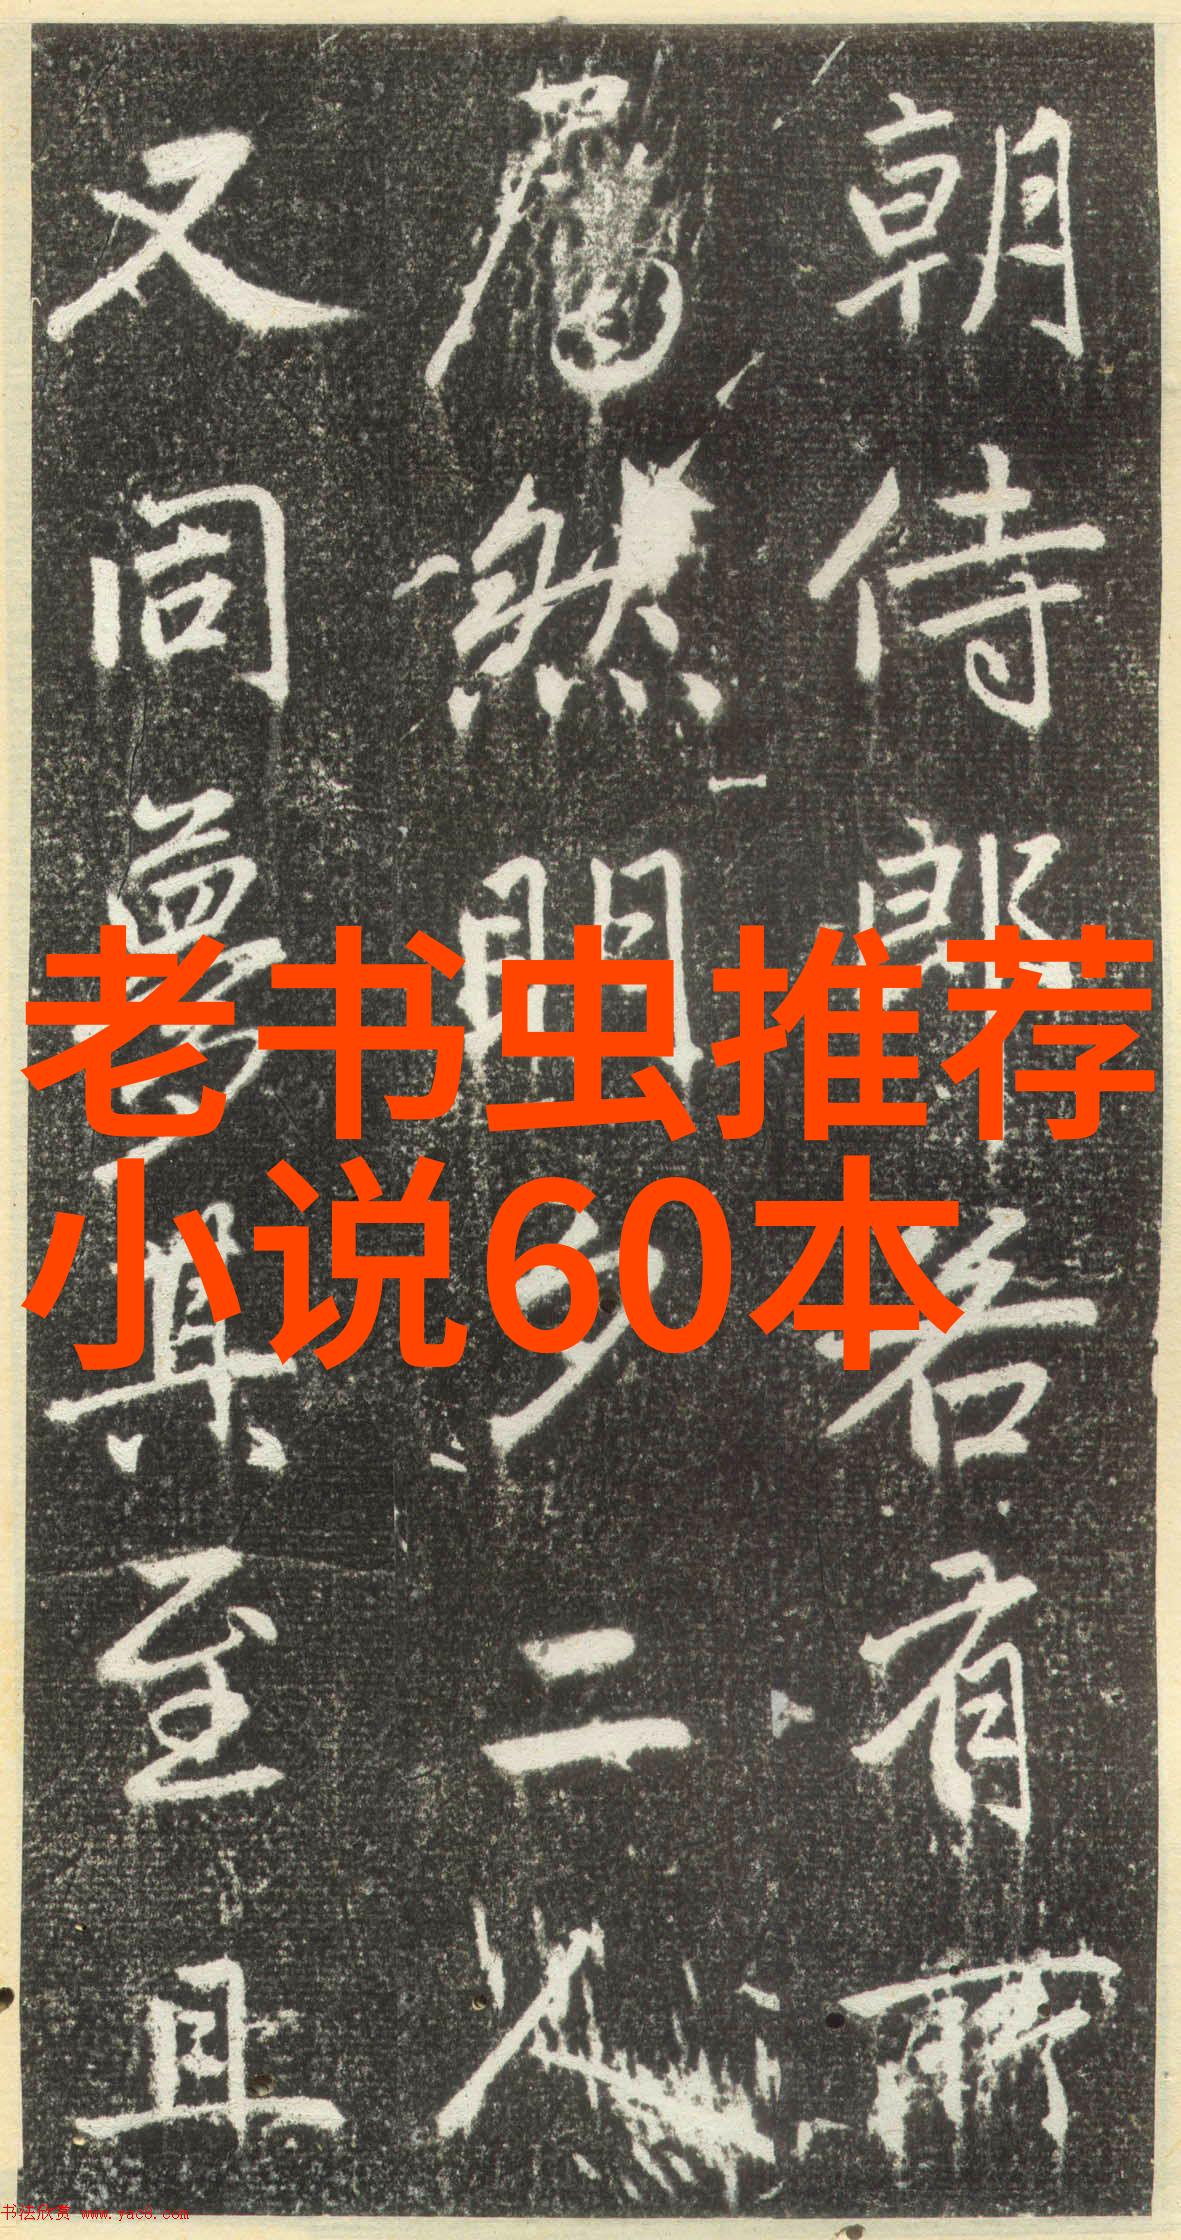 朝侍郎若有所
然明夕二人
又同夢其至且
老书虫推荐
小说60本
书法欣赏 www.yac8.com